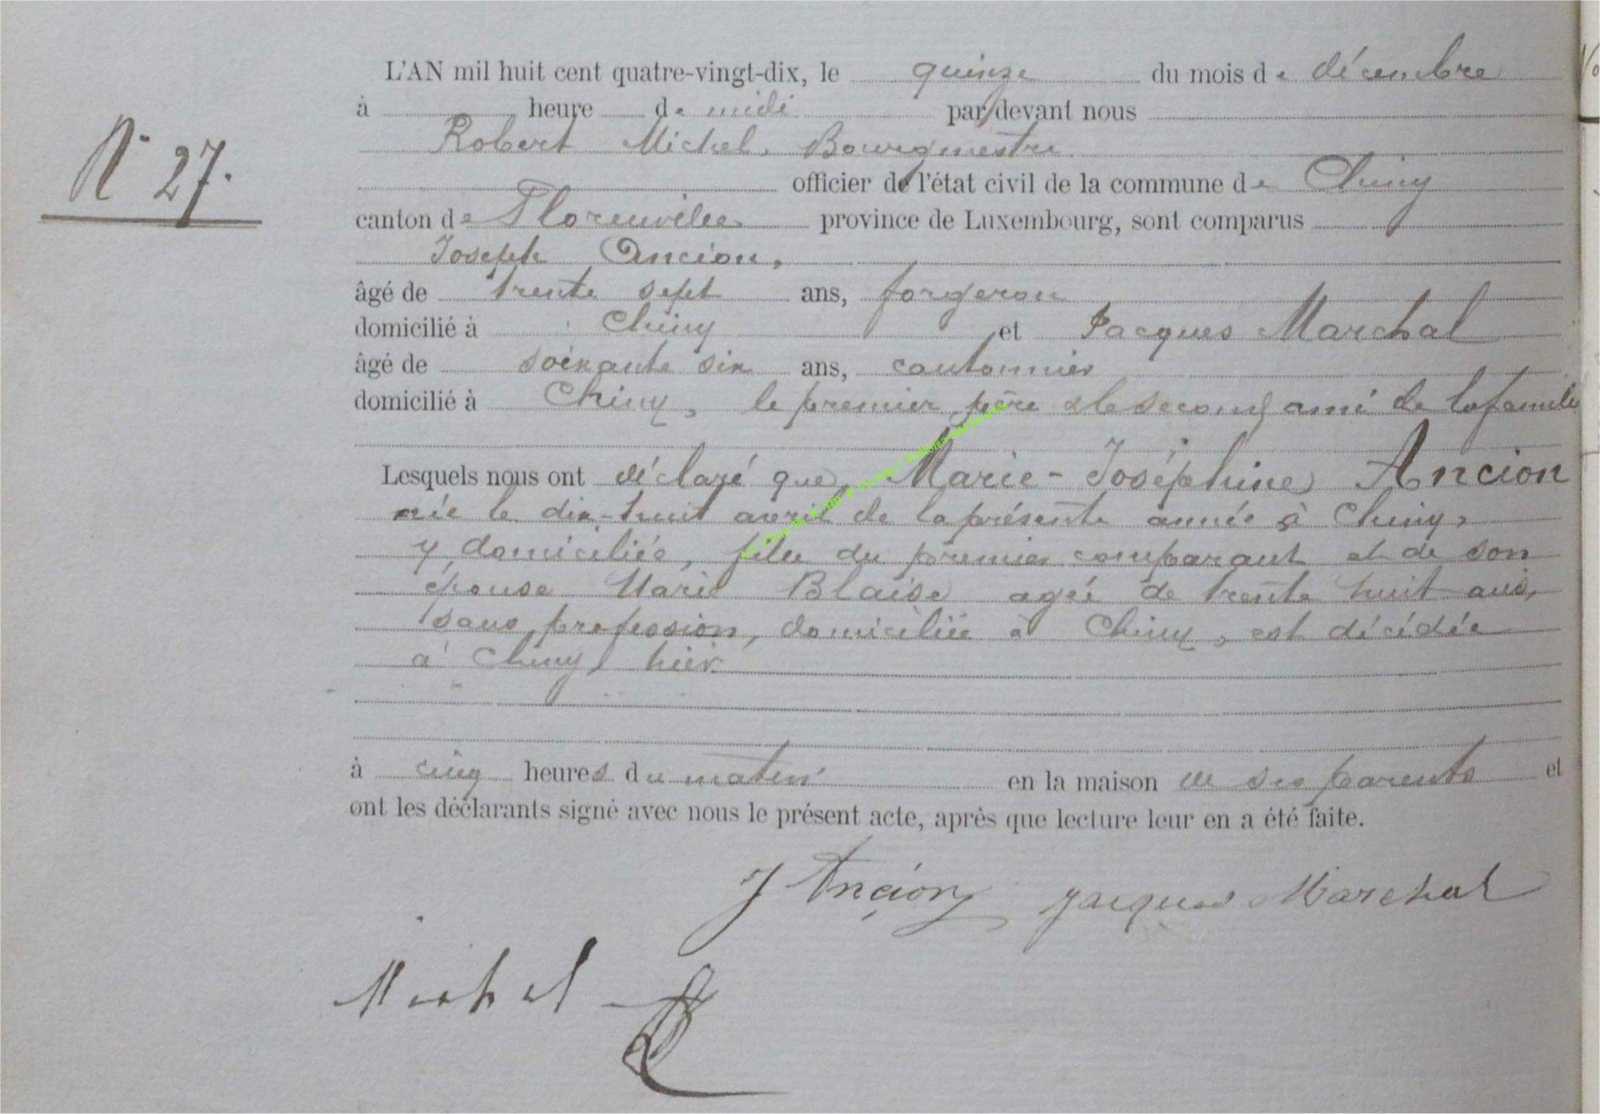 L'AN mil huit cent quatre-vingt-dix, le quinze du mois de décembre
à heure de midi par devant nous
N° 27.
Robert Michel, Bourgmestre
officier de l'état civil de la commune de Chiny
canton de Florenville province de Luxembourg, sont comparus
Joseph Ancion,
âgé de trente sept ans, forgeron
domicilié à Chiny et Jacques Marchal
âgé de soixante six ans, cantonnier
domicilié à Chiny, le premier père & le second ami de la famille
Lesquels nous ont déclaré que Marie-Joséphine Ancion
née le dix-huit avril de la présente année à Chiny,
y domiciliée, fille du premier comparant et de son
épouse Marie Blaise agée de trente huit ans,
sans profession, domiciliée à Chiny, est décédée
à Chiny hier
à cinq heures du matin en la maison de ses parents et
ont les déclarants signé avec nous le présent acte, après que lecture leur en a été faite.
J Ancion Jacques Marchal
Michel R